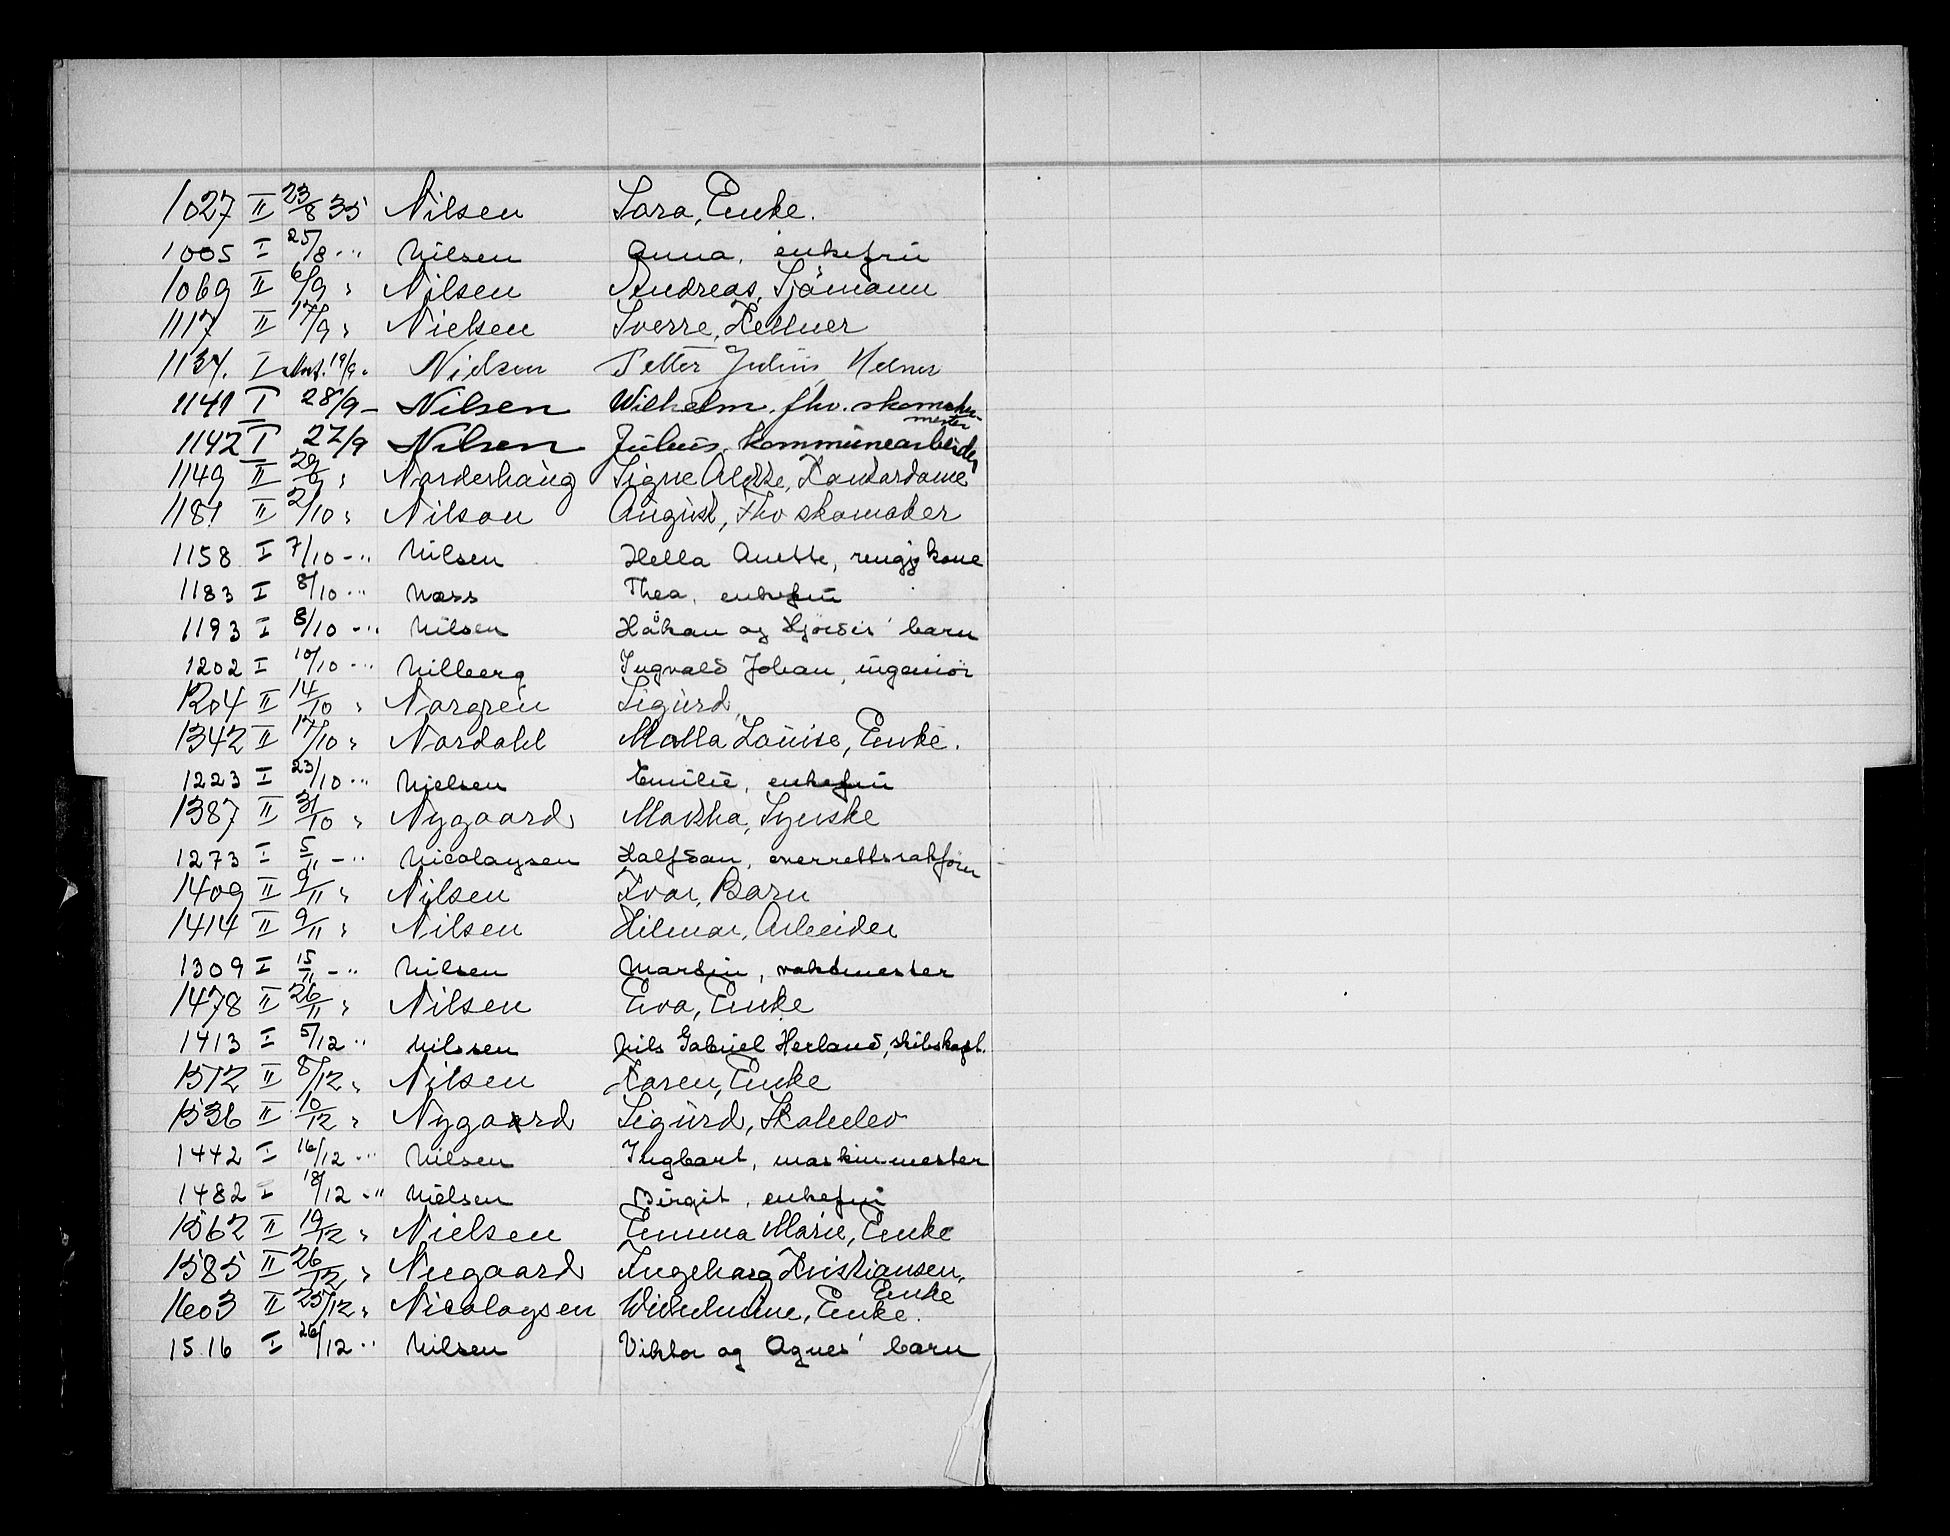 1027 II 23/8 35 Nilsen Sara, Enke.
1005 I 25/8 -" Nilsen Anna, enkefru
1069 II 6/9 " Nilsen Andreas, Sjömann
1117 II 17/9 " Nielsen Sverre, Kellner
1134. I 19/9 " Nielsen Petter Julius
1141 I 28/9 - Nilsen Wilhelm, fhv. skomaker-
mester
1142 I 27/9 Nilsen Julius, kommunearbeider
1149 II 29/9 " Norderhaug Signe Alette, Kontordame
1181 II 2/10 " Nilson August, Fhv skomaker
1158 I 7/10 -" Nilsen Hella Anette, rengj kone
1183 I 8/10 -" Næss Thea, enkefru
1193 I 8/10 -" Nilsen Håkan og Hjördis' barn
1202 I 10/10 -" Nilberg Ingvald Johan, ingeniör
1204 II 14/10 " Norgren Sigurd,
1342 II 17/10 " Nordahl Malla Louise, Enke.
1223 I 23/10 -" Nielsen Emilie, enkefru
1387 II 31/10 " Nygaard Martha, Syerske
1273 I 5/11 -" Nicolaysen Halfdan, overrettssakförer
1409 II 9/11 " Nilsen Ivar, Barn
1414 II 9/11 " Nilsen Hilmar, Arbeider
1309 I 15/11 -" Nilsen Martin, vaktmester
1478 II 26/11 " Nilsen Eva, Enke
1413 I 5/12 " Nilssen Nils Gabriel Herland, skibskapt.
1512 II 8/12 " Nilsen Karen, Enke
1536 II 10/12 " Nygaard Sigurd, Skoleelev
1442 I 16/12 -" Nilsen Ingbart, maskinmester
1482 I 18/12 -" Nielsen Birgit, enkefru
1562 II 19/12 " Nielsen Emma Marie, Enke
1585 II 26/12 " Neegaard Ingeborg Kristiansen,
Enke
1603 II 25/12 " Nicolaysen Wilhelmine, Enke.
1516 I 26/12 " Nilsen Viktor og Agnes' barn